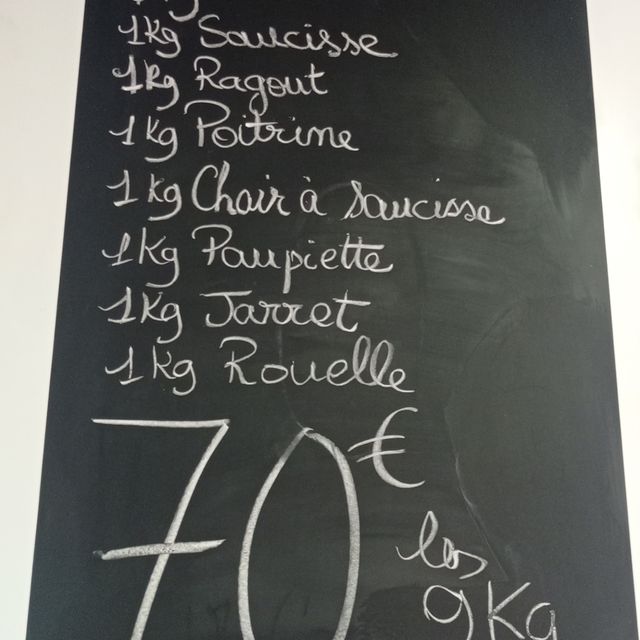 1Kg Saucisse
1Kg Ragout
1Kg Poitrine
1Kg Chair à saucisse
1Kg Paupiette
1Kg Jarret
1Kg Rouelle
70 €
les
9Kg